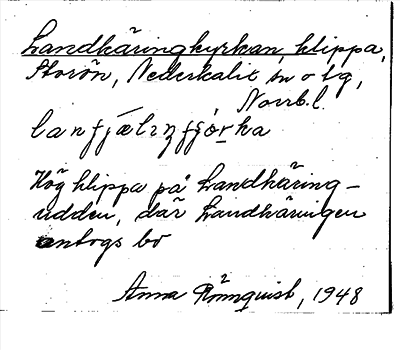 Landkäringkyrkan, klippa,
Storön, Nederkalix sn o tg,
Norrb. l.
Hög klippa på Landkäring-
udden, där Landkäringen
antogs bo
Anna Rönnquist, 1948